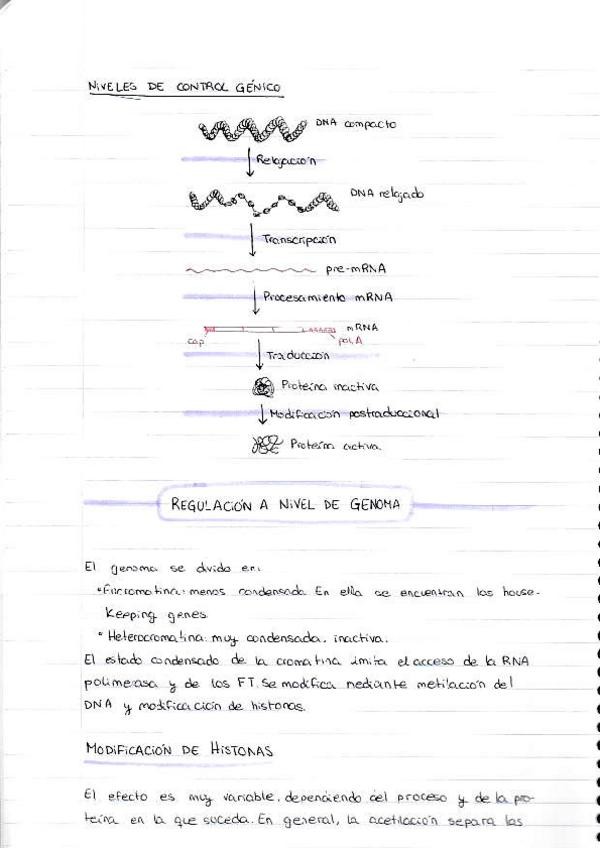 NIVELES DE CONTROL GÉNICO
DNA compacto
Relajación
DNA relajado
Transcripción
pre-mRNA
Procesamiento mRNA
mRNA
cap
poliA
Traducción
Proteína inactiva
Modificación postraduccional
Proteína activa.
REGULACIÓN A NIVEL DE GENOMA
El genoma se divide en:
• Eucromatina: menos condensada. En ella se encuentran los house-
keeping genes.
• Heterocromatina: muy condensada, inactiva.
El estado condensado de la cromatina limita el acceso de la RNA
polimerasa y de los FT. Se modifica mediante metilación del
DNA y modificación de histonas.
MODIFICACIÓN DE HISTONAS
El efecto es muy variable, dependiendo del proceso y de la pro-
teína en la que suceda. En general, la acetilación separa las